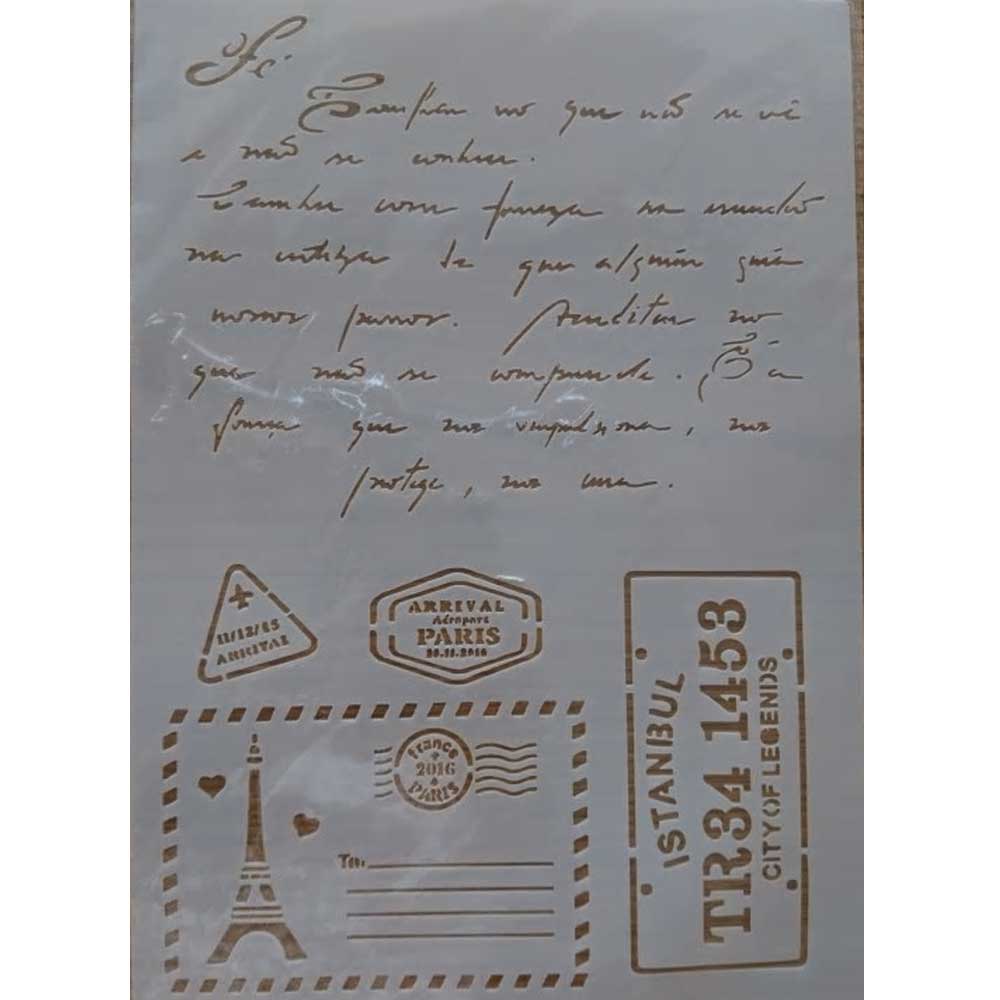 Fé
no que não se vê
e não se conhece.
Caminhar com firmeza no mundo
na certeza de que alguém guia
nossos passos. Acreditar no
que não se compreende. É a
força que nos impulsiona, nos
protege, nos una.
11/12/85
ARRIVAL
ARRIVAL
Aéroport
PARIS
20.11.2016
france
2016
PARIS
To:
ISTANBUL
TR34 1453
CITY OF LEGENDS